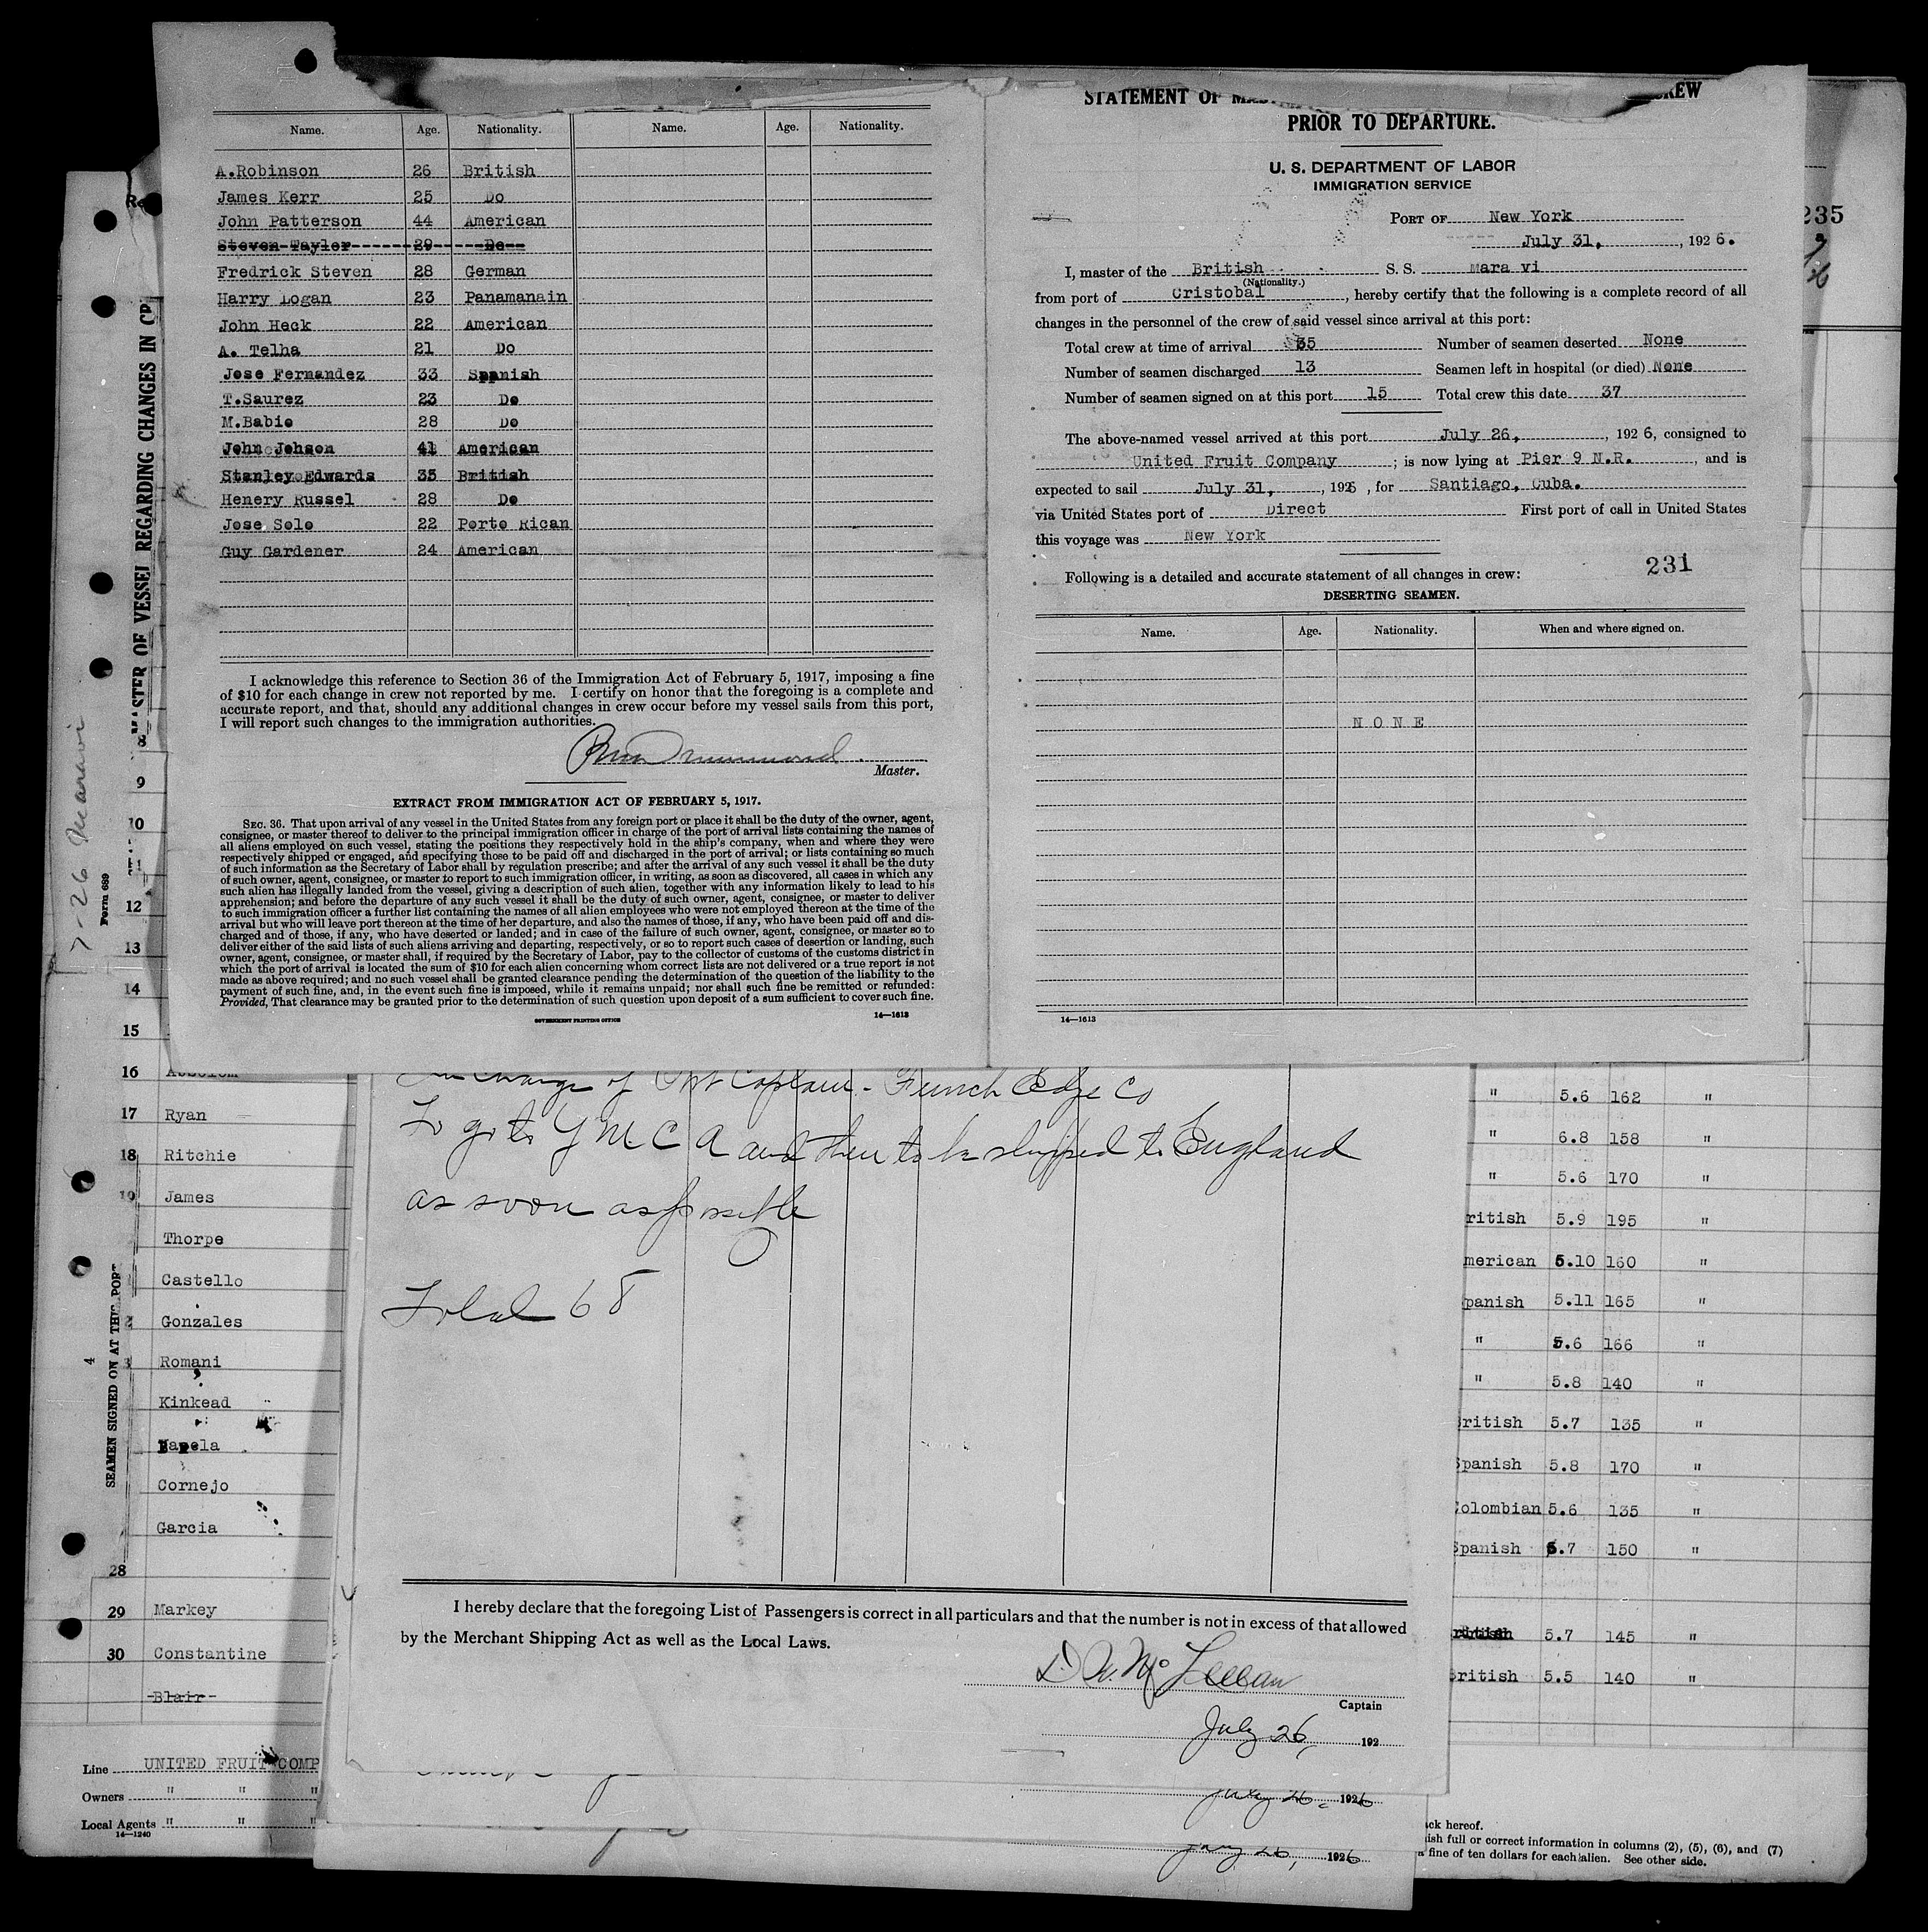 Name. Age. Nationality. Name. Age. Nationality.
A.Robinson 26 British
James Kerr 25 Do
John Patterson 44 American
Steven Tayler 29 Do
Fredrick Steven 28 German
Harry Logan 23 Panamanain
John Heck 22 American
A. Telha 21 Do
Jose Fernandez 33 Spanish
T.Saurez 23 Do
M.Babio 28 Do
John Johson 41 American
Stanley Edwards 35 British
Henery Russel 28 Do
Jose Solo 22 Porto Rican
Guy Gardener 24 American
I acknowledge this reference to Section 36 of the Immigration Act of February 5, 1917, imposing a fine
of $10 for each change in crew not reported by me. I certify on honor that the foregoing is a complete and
accurate report, and that, should any additional changes in crew occur before my vessel sails from this port,
I will report such changes to the immigration authorities.
Drummond
Master.
EXTRACT FROM IMMIGRATION ACT OF FEBRUARY 5, 1917.
SEC. 36. That upon arrival of any vessel in the United States from any foreign port or place it shall be the duty of the owner, agent,
consignee, or master thereof to deliver to the principal immigration officer in charge of the port of arrival lists containing the names of
all aliens employed on such vessel, stating the positions they respectively hold in the ship's company, when and where they were
respectively shipped or engaged, and specifying those to be paid off and discharged in the port of arrival; or lists containing so much
of such information as the Secretary of Labor shall by regulation prescribe; and after the arrival of any such vessel it shall be the duty
of such owner, agent, consignee, or master to report to such immigration officer, in writing, as soon as discovered, all cases in which any
such alien has illegally landed from the vessel, giving a description of such alien, together with any information likely to lead to his
apprehension; and before the departure of any such vessel it shall be the duty of such owner, agent, consignee, or master to deliver
to such immigration officer a further list containing the names of all alien employees who were not employed thereon at the time of the
arrival but who will leave port thereon at the time of her departure, and also the names of those, if any, who have been paid off and dis-
charged and of those, if any, who have deserted or landed; and in case of the failure of such owner, agent, consignee, or master so to
deliver either of the said lists of such aliens arriving and departing, respectively, or so to report such cases of desertion or landing, such
owner, agent, consignee, or master shall, if required by the Secretary of Labor, pay to the collector of customs of the customs district in
which the port of arrival is located the sum of $10 for each alien concerning whom correct lists are not delivered or a true report is not
made as above required; and no such vessel shall be granted clearance pending the determination of the question of the liability to the
payment of such fine, and, in the event such fine is imposed, while it remains unpaid; nor shall such fine be remitted or refunded:
Provided, That clearance may be granted prior to the determination of such question upon deposit of a sum sufficient to cover such fine.
GOVERNMENT PRINTING OFFICE 14—1613
STATEMENT OF CREW
PRIOR TO DEPARTURE.
U. S. DEPARTMENT OF LABOR
IMMIGRATION SERVICE
PORT OF New York
July 31, , 1926.
I, master of the British S. S. Mara vi
(Nationality.)
from port of Cristobal , hereby certify that the following is a complete record of all
changes in the personnel of the crew of said vessel since arrival at this port:
Total crew at time of arrival 35 Number of seamen deserted None
Number of seamen discharged 13 Seamen left in hospital (or died) None
Number of seamen signed on at this port 15 Total crew this date 37
The above-named vessel arrived at this port July 26, , 1926, consigned to
United Fruit Company ; is now lying at Pier 9 N.R. , and is
expected to sail July 31, , 1926 , for Santiago, Cuba.
via United States port of Direct First port of call in United States
this voyage was New York
Following is a detailed and accurate statement of all changes in crew: 231
DESERTING SEAMEN.
Name. Age. Nationality. When and where signed on.
NONE
14—1613
235
MASTER OF VESSEL REGARDING CHANGES IN CR
7-26 Maravi
Form 689
4
SEAMEN SIGNED ON AT THIS PORT
8
9
10
12
13
14
15
16
17 Ryan
18 Ritchie
19 James
Thorpe
Castello
Gonzales
Romani
Kinkead
Varela
Cornejo
Garcia
28
29 Markey
30 Constantine
Blair
Line UNITED FRUIT COMP
Owners " " "
Local Agents " " "
14—1240
in charge of Captain - Furnch Edge Co
To go to Y M C A and then to be shipped to England
as soon as possible
Total 68
I hereby declare that the foregoing List of Passengers is correct in all particulars and that the number is not in excess of that allowed
by the Merchant Shipping Act as well as the Local Laws.
Captain
July 26, 192
July 26, 1926
July 26, 1926
" 5.6 162 "
" 6.8 158 "
" 5.6 170 "
ritish 5.9 195 "
merican 5.10 160 "
panish 5.11 165 "
" 5.6 166 "
" 5.8 140 "
British 5.7 135 "
Spanish 5.8 170 "
Colombian 5.6 135 "
Spanish 5.7 150 "
ritish 5.7 145 "
British 5.5 140 "
ack hereof.
ish full or correct information in columns (2), (5), (6), and (7)
a fine of ten dollars for each alien. See other side.